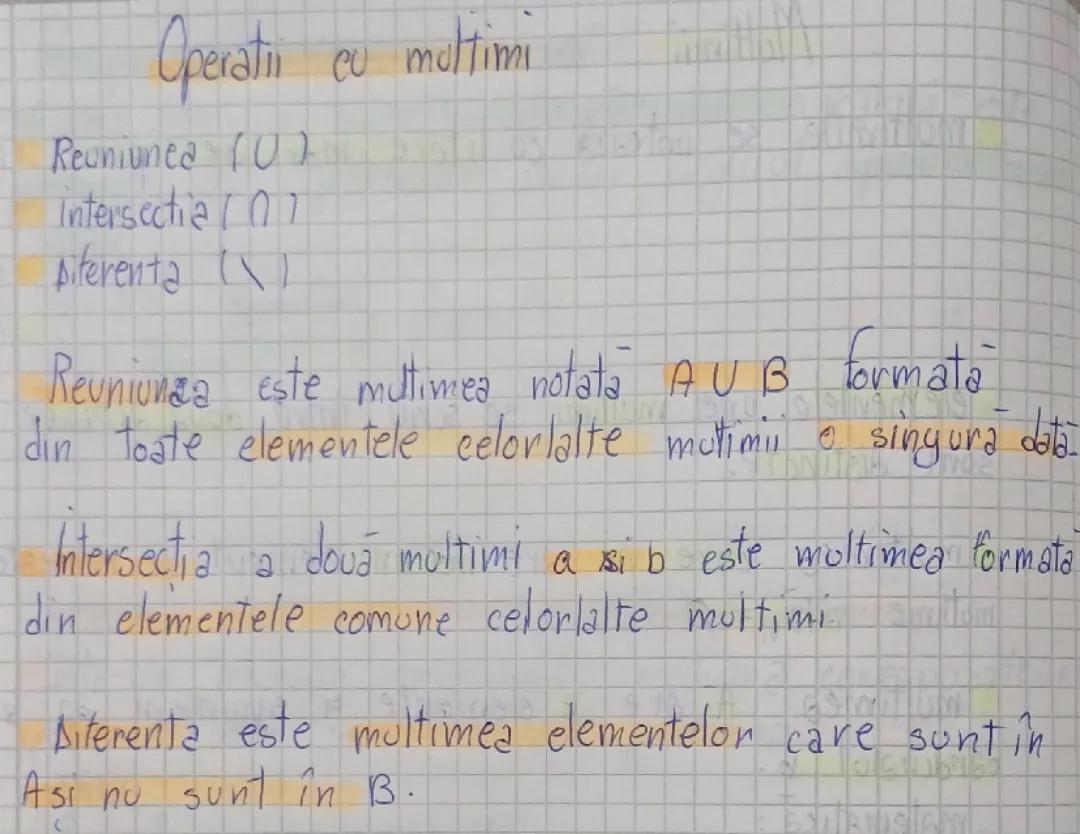 Operatii cu multimi
Reuniunea (U)
intersectia (∩)
Diferenta (\)
Reuniunea este multimea notată A U B formată
din toate elementele celorlalte mulțimii o singură dată.
Intersecția a două multimi a si b este multimea formata
din elementele comune celorlalte multimi.
Diferenta este multimea elementelor care sunt în
A și nu sunt în B.